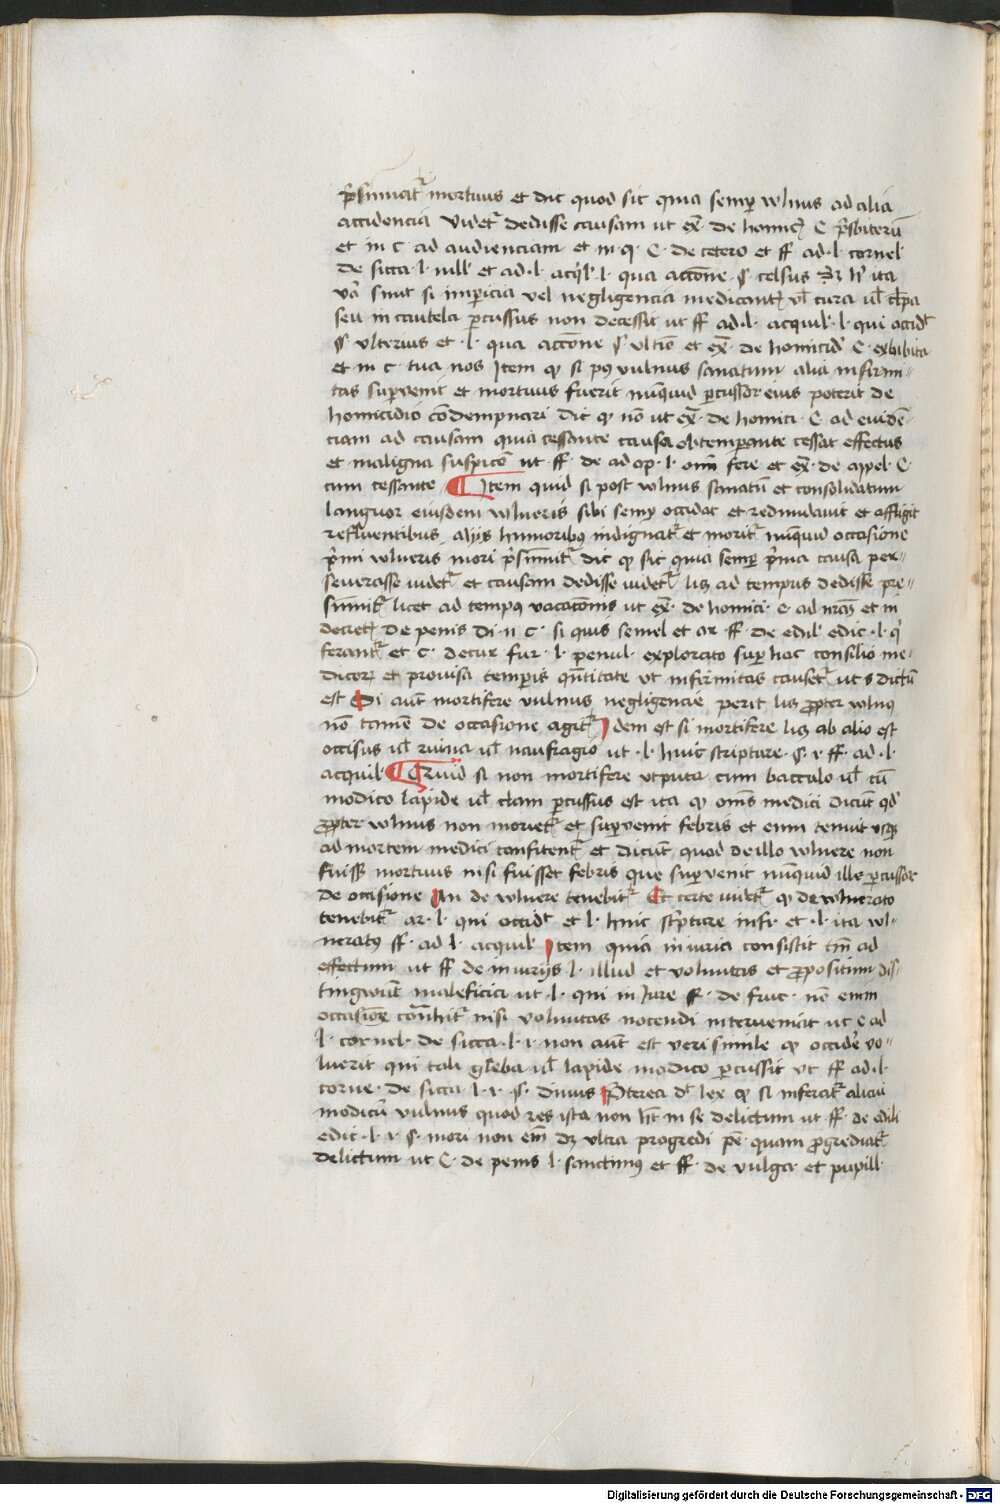 p̄sumat᷑ mortuus et dic quod sic quia semp̱ wlnus ad alia
accidencia videt᷑ dedisse causam ut ex̄ de homicꝫ C p̄sbiterū
et in c ad audienciam et in q̄ C de cetero et ff ad l cornel̛
de sicca l null̛ et ad l acq̇l̛ l qua acc̄one § celsus ita
v̊o sint si impericia vel negligencia medicantꝫ vl̛ cura ul̛ cl̄pa
seu in cautela p̱cussus non decessit ut ff ad l acquil̛ l qui occid̛
§ vlterius et l qua acc̄one § vltīo et ex̄ de homicid̛ C exhibita
et in c tua nos Item ꝙ si pꝰ vulnus sanatum alia infirmi-
tas sup̱venit et mortuus fuerit nū̄quid p̱cussor eius poterit de
homicidio cōdempnari dic ꝙ nō ut ex̄ de homici C ad euidē-
ciam ad causam quia cessante causa obtemp̱ante cessat effectus
et maligna suspicō ut ff de adop l om̄i fere et ex̄ de appel C
cum cessante ¶ Item quid si post wlnus sanatū et consolidatum
languor eiusdem wlneris sibi semp̱ occidat et redundauit et affligit
refluentibus alijs humoribus indignat᷑ et morit᷑ nū̄quid occasione
p̄mi wlneris mori p̄sumit᷑ dic ꝙ sic quia semp̱ p̄ma causa per-
seuerasse videt᷑ et causam dedisse videt᷑ licꝫ ad tempus dedisse pre-
sūmit᷑ licet ad tempꝰ vacac̄onis ut ex̄ de homici C ad nr̄aꝫ et in
decretꝫ de penis di ii c si quis semel et ar ff de edil̛ edic l q̇
ferant᷑ et c detur fur l penul explorato sup̱ hac consilio me-
dicoꝝ et prouisa temp̱is q̄ntitate vt infirmitas causet᷑ ut s dictū
est Si aūt mortifere vulnus negligencie perit licꝫ ꝓpter wlnꝰ
nō tamē de occasione agit᷑ Idem est si mortifere licꝫ ab alio est
occisus ul̛ ruina ul̛ naufragio ut l huic scripture § i ff ad l
acquil̛ ¶ Quid si non mortifere vtputa cum bacculo ul̛ cū
modico lapide ul̛ clam p̱cussus est ita ꝙ om̄s medici dicūt qd̛
ꝓpter wlnus non moriet᷑ et sup̱venit febris et eum tenuit vsqꝫ
ad mortem medici confitent᷑ et dicūt quod de illo wlnere non
fuissꝫ mortuus nisi fuisset febris que sup̱venit nū̄quid ille p̱cussor
de occisione An de wlnere tenebit᷑ Et certe videt᷑ ꝙ de wlnerato
tenebit᷑ ar l qui occid̛ et l huic sc̄pture infr̛ et l ita wl-
neratꝰ ff ad l acquil̛ Item quia iniuria consistit tm̄ ad
effectum ut ff de iniurijs l illud et voluntas et ꝓpositum dis-
tingwūt maleficia ut l qui iniure ff de furt nē enim
occasionē con̄hit᷑ nisi voluntas nocendi interueniat ut C ad
l cornel̛ de sicca l i non aūt est veri simile ꝙ occide̛ vo-
luerit qui tali gleba ul̛ lapide modico p̱cussit vt ff ad l
corne de sicca l i § diuus Pterea d̛ lex ꝙ si inferat᷑ alicui
modicū vulnus quod res ista non hꝫ in se delictum ut ff de edili
edic l i § mori non em̄ dꝫ vltra progredi pē quam ꝓgrediat᷑
delictum ut C de penis l sanctimꝰ et ff de vulga et pupill
Digitalisierung gefördert durch die Deutsche Forschungsgemeinschaft - DFG